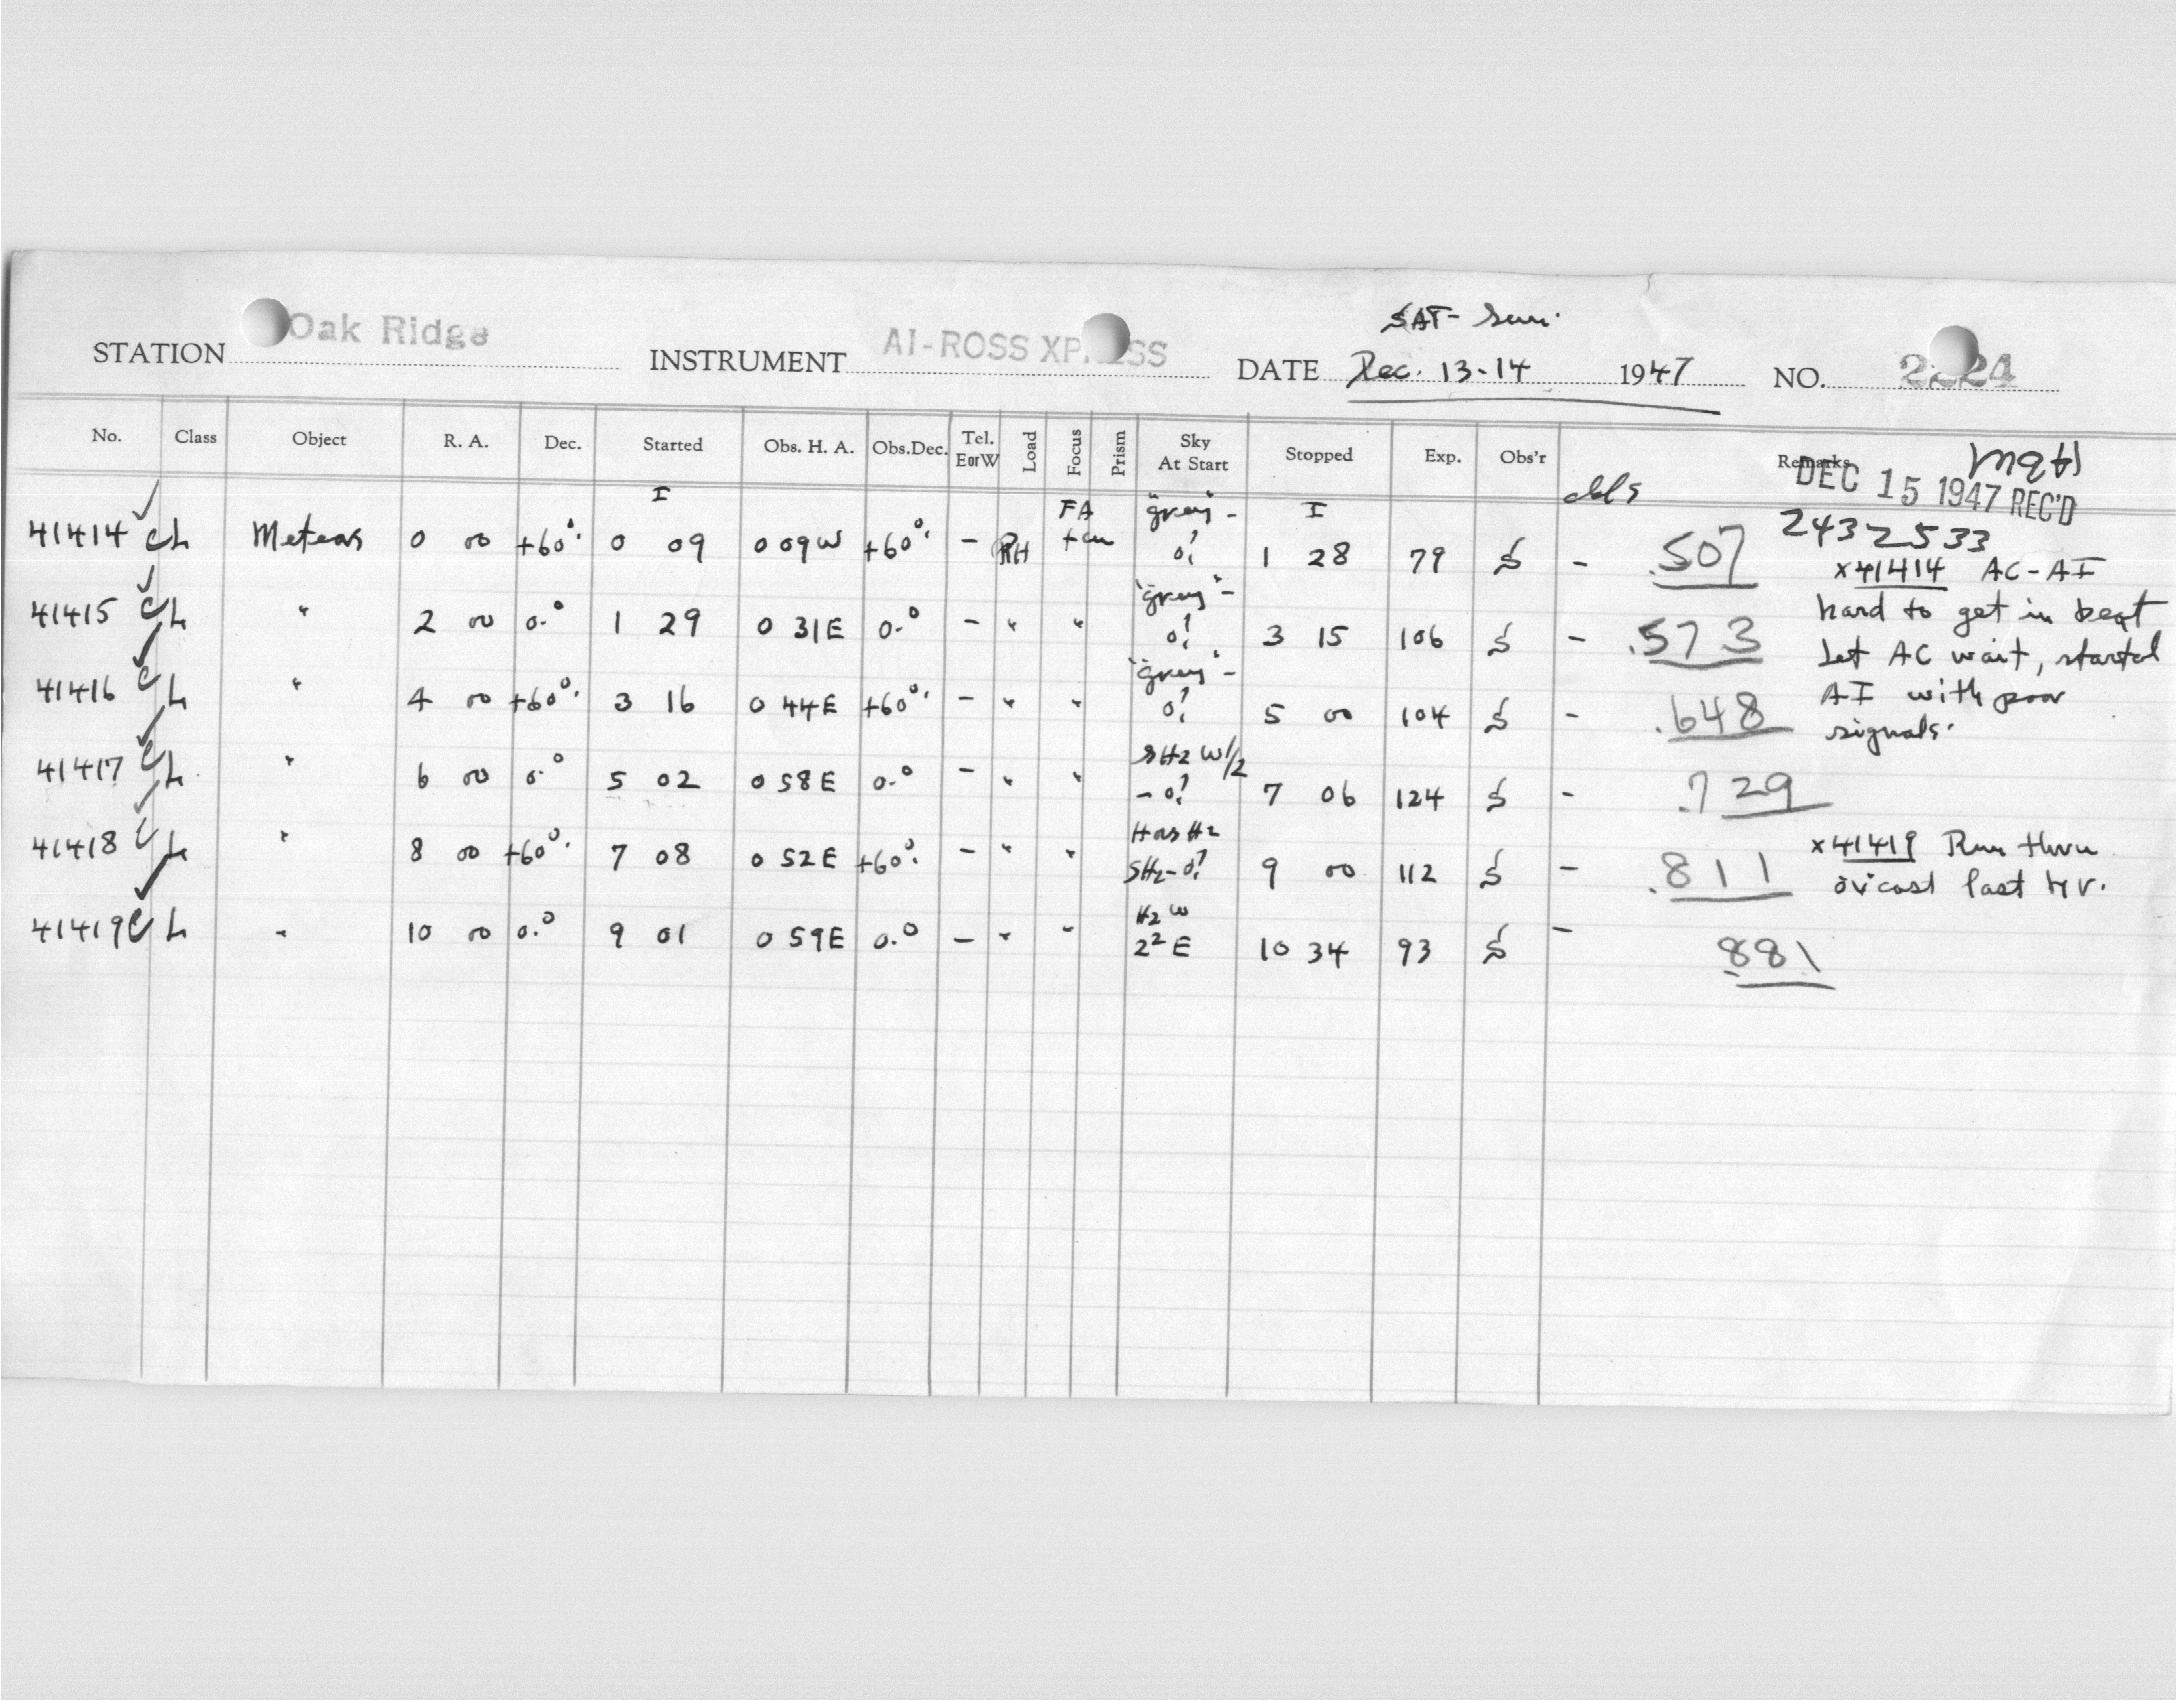 SAT- Sun.
STATION Oak Ridge INSTRUMENT AI-ROSS XP SS DATE Dec. 13-14 1947 NO. 24
No. Class Object R. A. Dec. Started Obs. H. A. Obs.Dec. Tel. E or W Load Focus Prism Sky At Start Stopped Exp. Obs'r Remarks
MqH
DEC 15 1947 REC'D
2432533
I FA "grey" - I
41414 CL Meteors 0 00 +60°. 0 09 0 09W +60°. - RH o? 1 28 79 S - .507
x41414 AC-AI
"grey" -
41415 CL " 2 00 0.° 1 29 0 31E 0.° - " " o? 3 15 106 S - .573
hard to get in beat
Let AC wait, started
"grey" -
41416 CL " 4 00 +60°. 3 16 0 44E +60°. - " " o? 5 00 104 S - .648
AI with poor
signals.
SHz W/2
41417 CL " 6 00 0.° 5 02 0 58E 0.° - " " - o? 7 06 124 S - .729
Hz
41418 CL " 8 00 +60°. 7 08 0 52E +60°. - " " SHz-o? 9 00 112 S - .811
x41419 Run thru
ov'cast last hr.
Hz W
41419 CL " 10 00 0.° 9 01 0 59E 0.° - " " 2² E 10 34 93 S - .881